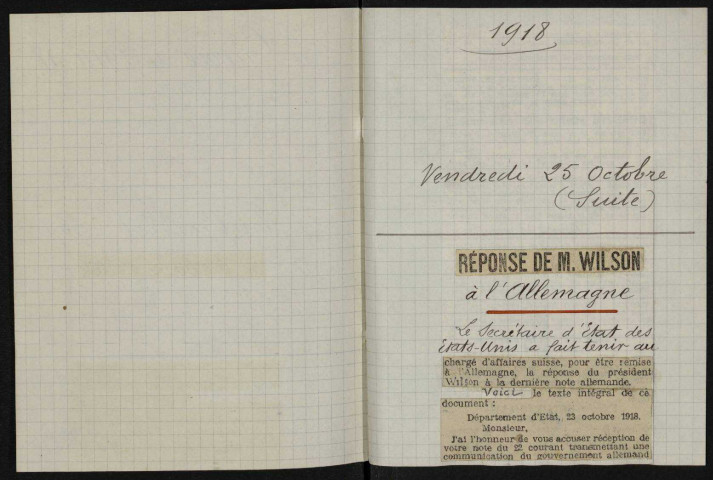 1918
Vendredi 25 Octobre
(Suite)
RÉPONSE DE M. WILSON
à l'Allemagne
Le Secrétaire d'État des
États-Unis a fait tenir au
chargé d'affaires suisse, pour être remise
à l'Allemagne, la réponse du président
Wilson à la dernière note allemande.
Voici le texte intégral de ce
document :
Département d'Etat, 23 octobre 1918.
Monsieur,
J'ai l'honneur de vous accuser réception de
votre note du 22 courant transmettant une
communication du gouvernement allemand